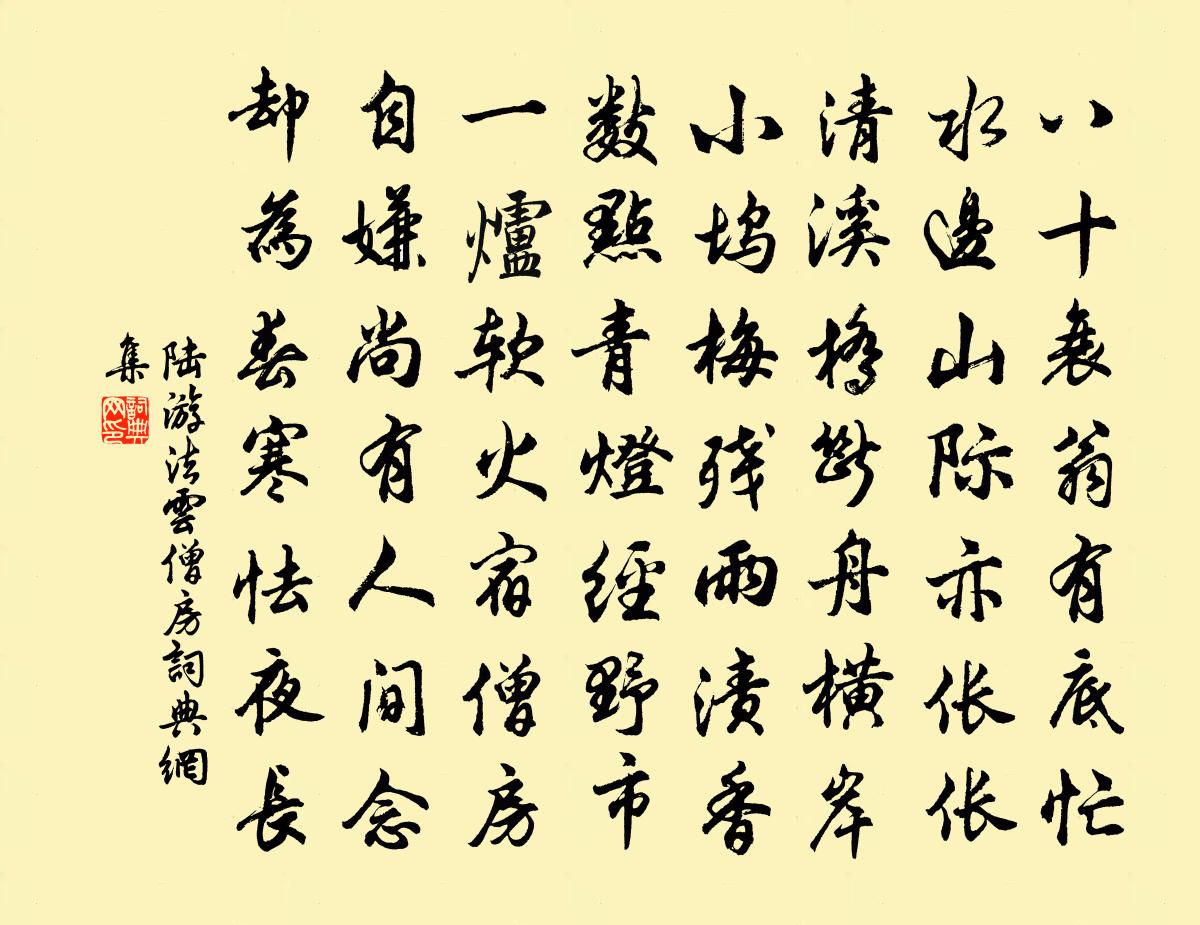 八十衰翁有底忙
水邊山际亦伥伥
清溪橋斷舟橫岸
小坞梅残雨漬香
數點青燈經野市
一爐软火宿僧房
自嫌尚有人間念
却為春寒怯夜長
陆游法雲僧房詞典網
集
詞典
网印